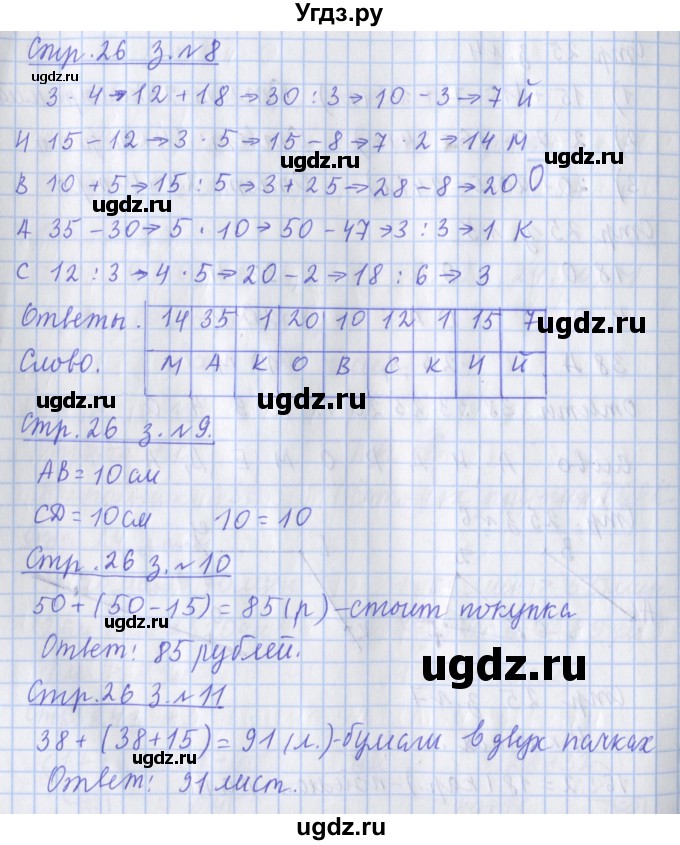 Угдз.ру
Стр. 26 з. №8
ugdz.ru
3 · 4 → 12 + 18 → 30 : 3 → 10 - 3 → 7 Й
И 15 - 12 → 3 · 5 → 15 - 8 → 7 · 2 → 14 М
ugdz.ru ugdz.ru
В 10 + 5 → 15 : 5 → 3 + 25 → 28 - 8 → 20 О
ugdz.ru
А 35 - 30 → 5 · 10 → 50 - 47 → 3 : 3 → 1 К
ugdz.ru
С 12 : 3 → 4 · 5 → 20 - 2 → 18 : 6 → 3
ugdz.ru
Ответы. 14 35 1 20 10 12 1 15 7
ugdz.ru
Слово. М А К О В С К И Й
ugdz.ru
ugdz.ru
Стр. 26 з. №9.
ugdz.ru
АВ = 10 см
ugdz.ru
СD = 10 см 10 = 10
ugdz.ru
Стр. 26 з. №10
50 + (50 - 15) = 85 (р) - стоит покупка
ugdz.ru
Ответ: 85 рублей.
ugdz.ru
Стр. 26 з. №11
ugdz.ru
38 + (38 + 15) = 91 (л.) - бумаги в двух пачках
ugdz.ru
Ответ: 91 лист.
ugdz.ru
ugdz.ru